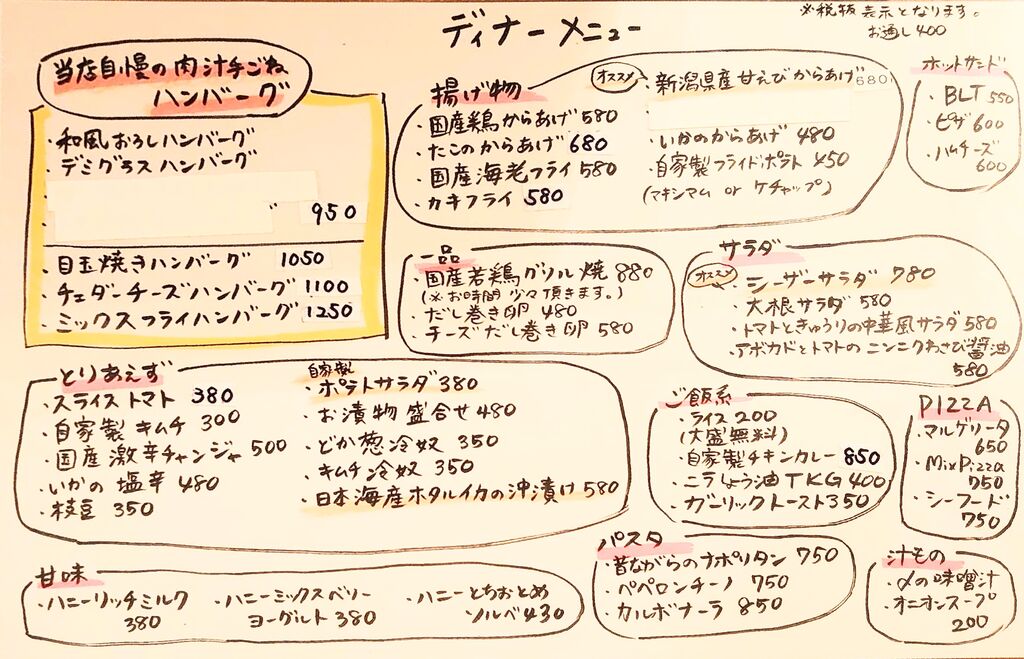 ディナーメニュー
※税抜表示となります。
お通し400
当店自慢の肉汁手ごね
ハンバーグ
・和風おろしハンバーグ
・デミグラスハンバーグ
950
・目玉焼きハンバーグ 1050
・チェダーチーズハンバーグ 1100
・ミックスフライハンバーグ 1250
揚げ物
・国産鶏からあげ 580
・たこのからあげ 680
・国産海老フライ 580
・カキフライ 580
オススメ
・新潟県産甘えびからあげ 680
・いかのからあげ 480
・自家製フライドポテト 450
(マキシマム or ケチャップ)
ホットサンド
・BLT 550
・ピザ 600
・ハムチーズ
600
一品
・国産若鶏グリル焼 880
(※お時間少々頂きます。)
・だし巻き卵 480
・チーズだし巻き卵 580
サラダ
オススメ
・シーザーサラダ 780
・大根サラダ 580
・トマトときゅうりの中華風サラダ 580
・アボカドとトマトのニンニクわさび醤油
580
とりあえず
・スライストマト 380
・自家製キムチ 300
・国産激辛チャンジャ 500
・いかの塩辛 480
・枝豆 350
自家製
・ポテトサラダ 380
・お漬物盛合せ 480
・どか葱冷奴 350
・キムチ冷奴 350
・日本海産ホタルイカの沖漬け 580
ご飯系
・ライス 200
(大盛無料)
・自家製チキンカレー 850
・ニラしょう油TKG 400
・ガーリックトースト 350
PIZZA
・マルゲリータ
650
・MixPizza
750
・シーフード
750
甘味
・ハニーリッチミルク
380
・ハニーミックスベリー
ヨーグルト 380
・ハニーとちおとめ
ソルベ 430
パスタ
・昔ながらのナポリタン 750
・ペペロンチーノ 750
・カルボナーラ 850
汁もの
・〆の味噌汁
・オニオンスープ
200